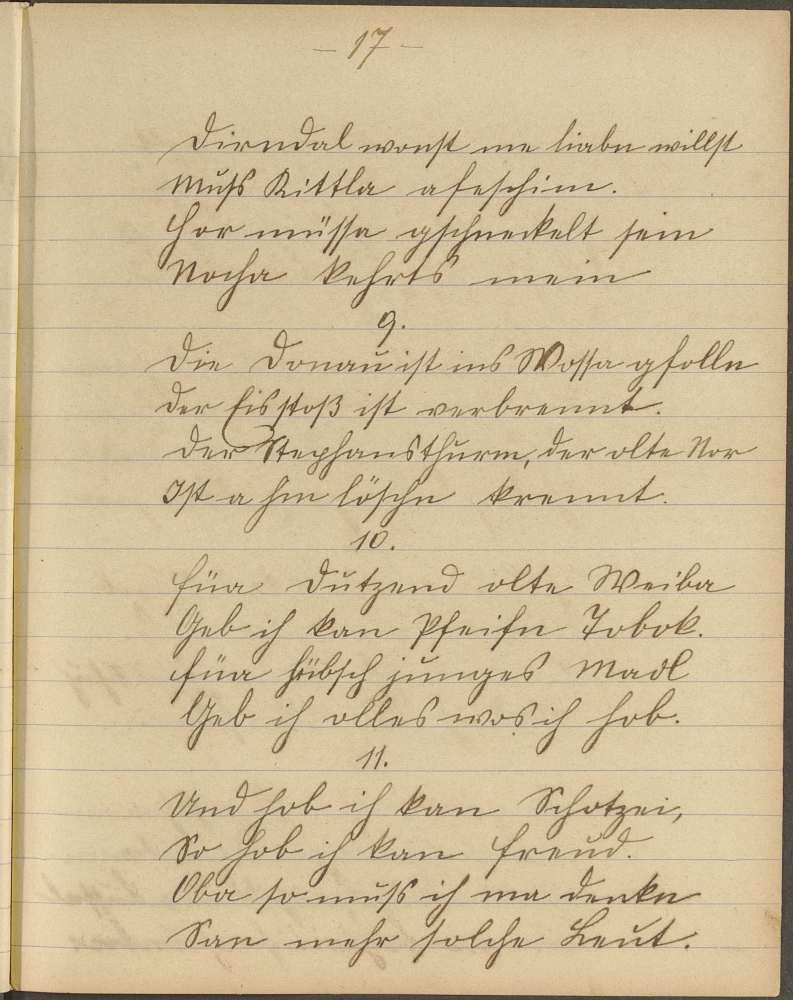 – 17 –
Dirndal wonst me liabn willst
Muss Kittla afeschinn.
Hor müssa gschneckelt sein
Nocha kehrts mein
9.
Die Donau ist ins Wossa gfolln
Der Eisstoß ist verbrennt.
Der Stephansthurm, der olte Nor
Ist a hin löschn krennt.
10.
Füa Dutzend olte Weiba
Geb ich kan Pfeifn Tobok.
Füa hübsch junges Madl
Geb ich olles wos ich hob.
11.
Und hob ich kan Schotzei,
So hob ich kan Freud.
Oba so muss ich ma denkn
San mehr solche Leut.